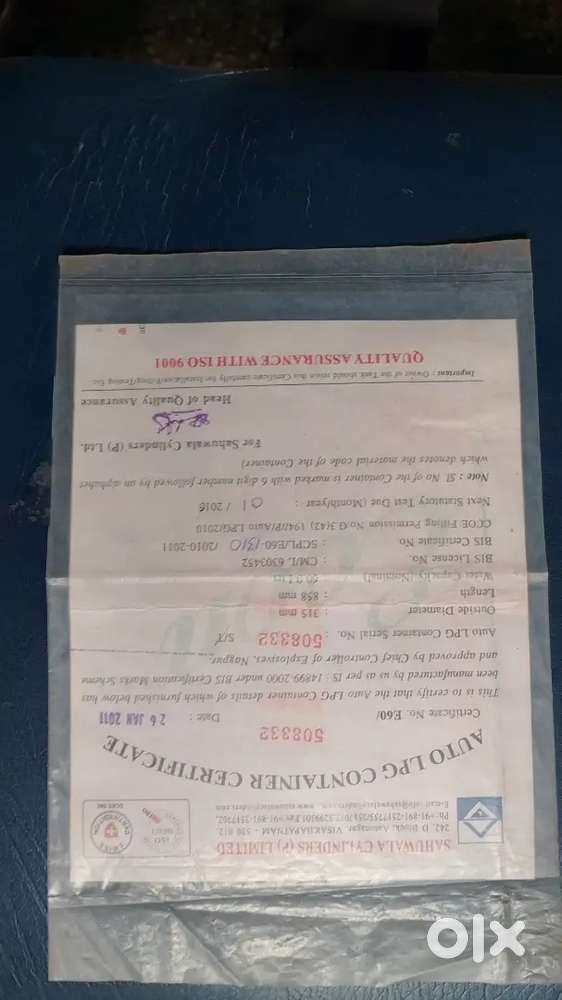 SAHUWALA CYLINDERS (P) LIMITED
242, 'D' Block, Autonagar, VISAKHAPATNAM - 530 012
AUTO LPG CONTAINER CERTIFICATE
508332
Certificate No. E60/
Date : 26 JAN 2011
This is to certify that the Auto LPG Container details of which furnished below has
been manufactured by us as per IS : 14899 2000 under BIS Certification Marks Scheme
and approved by Chief Controller of Explosives, Nagpur.
Auto LPG Container Serial No. : 508332 S/T
Outside Diameter : 315 mm
Length : 858 mm
Water Capacity (Nominal) : 60.0 Ltrs
BIS License No. : CM/L 6303452
BIS Certificate No. : SCPL/E60-1310/2010-2011
CCOE Filling Permission No. G.3(42) 194/P/Auto LPG/2010
Next Statutory Test Due (Month/year) : 01 / 2016
Note : Sl. No of the Container is marked with 6 digit number followed by an alphabet
which denotes the material code of the Container)
For Sahuwala Cylinders (P) Ltd.
Head of Quality Assurance
Important : Owner of the Tank should retain this Certificate carefully for Installation/Filling/Testing Etc.
QUALITY ASSURANCE WITH ISO 9001
olx